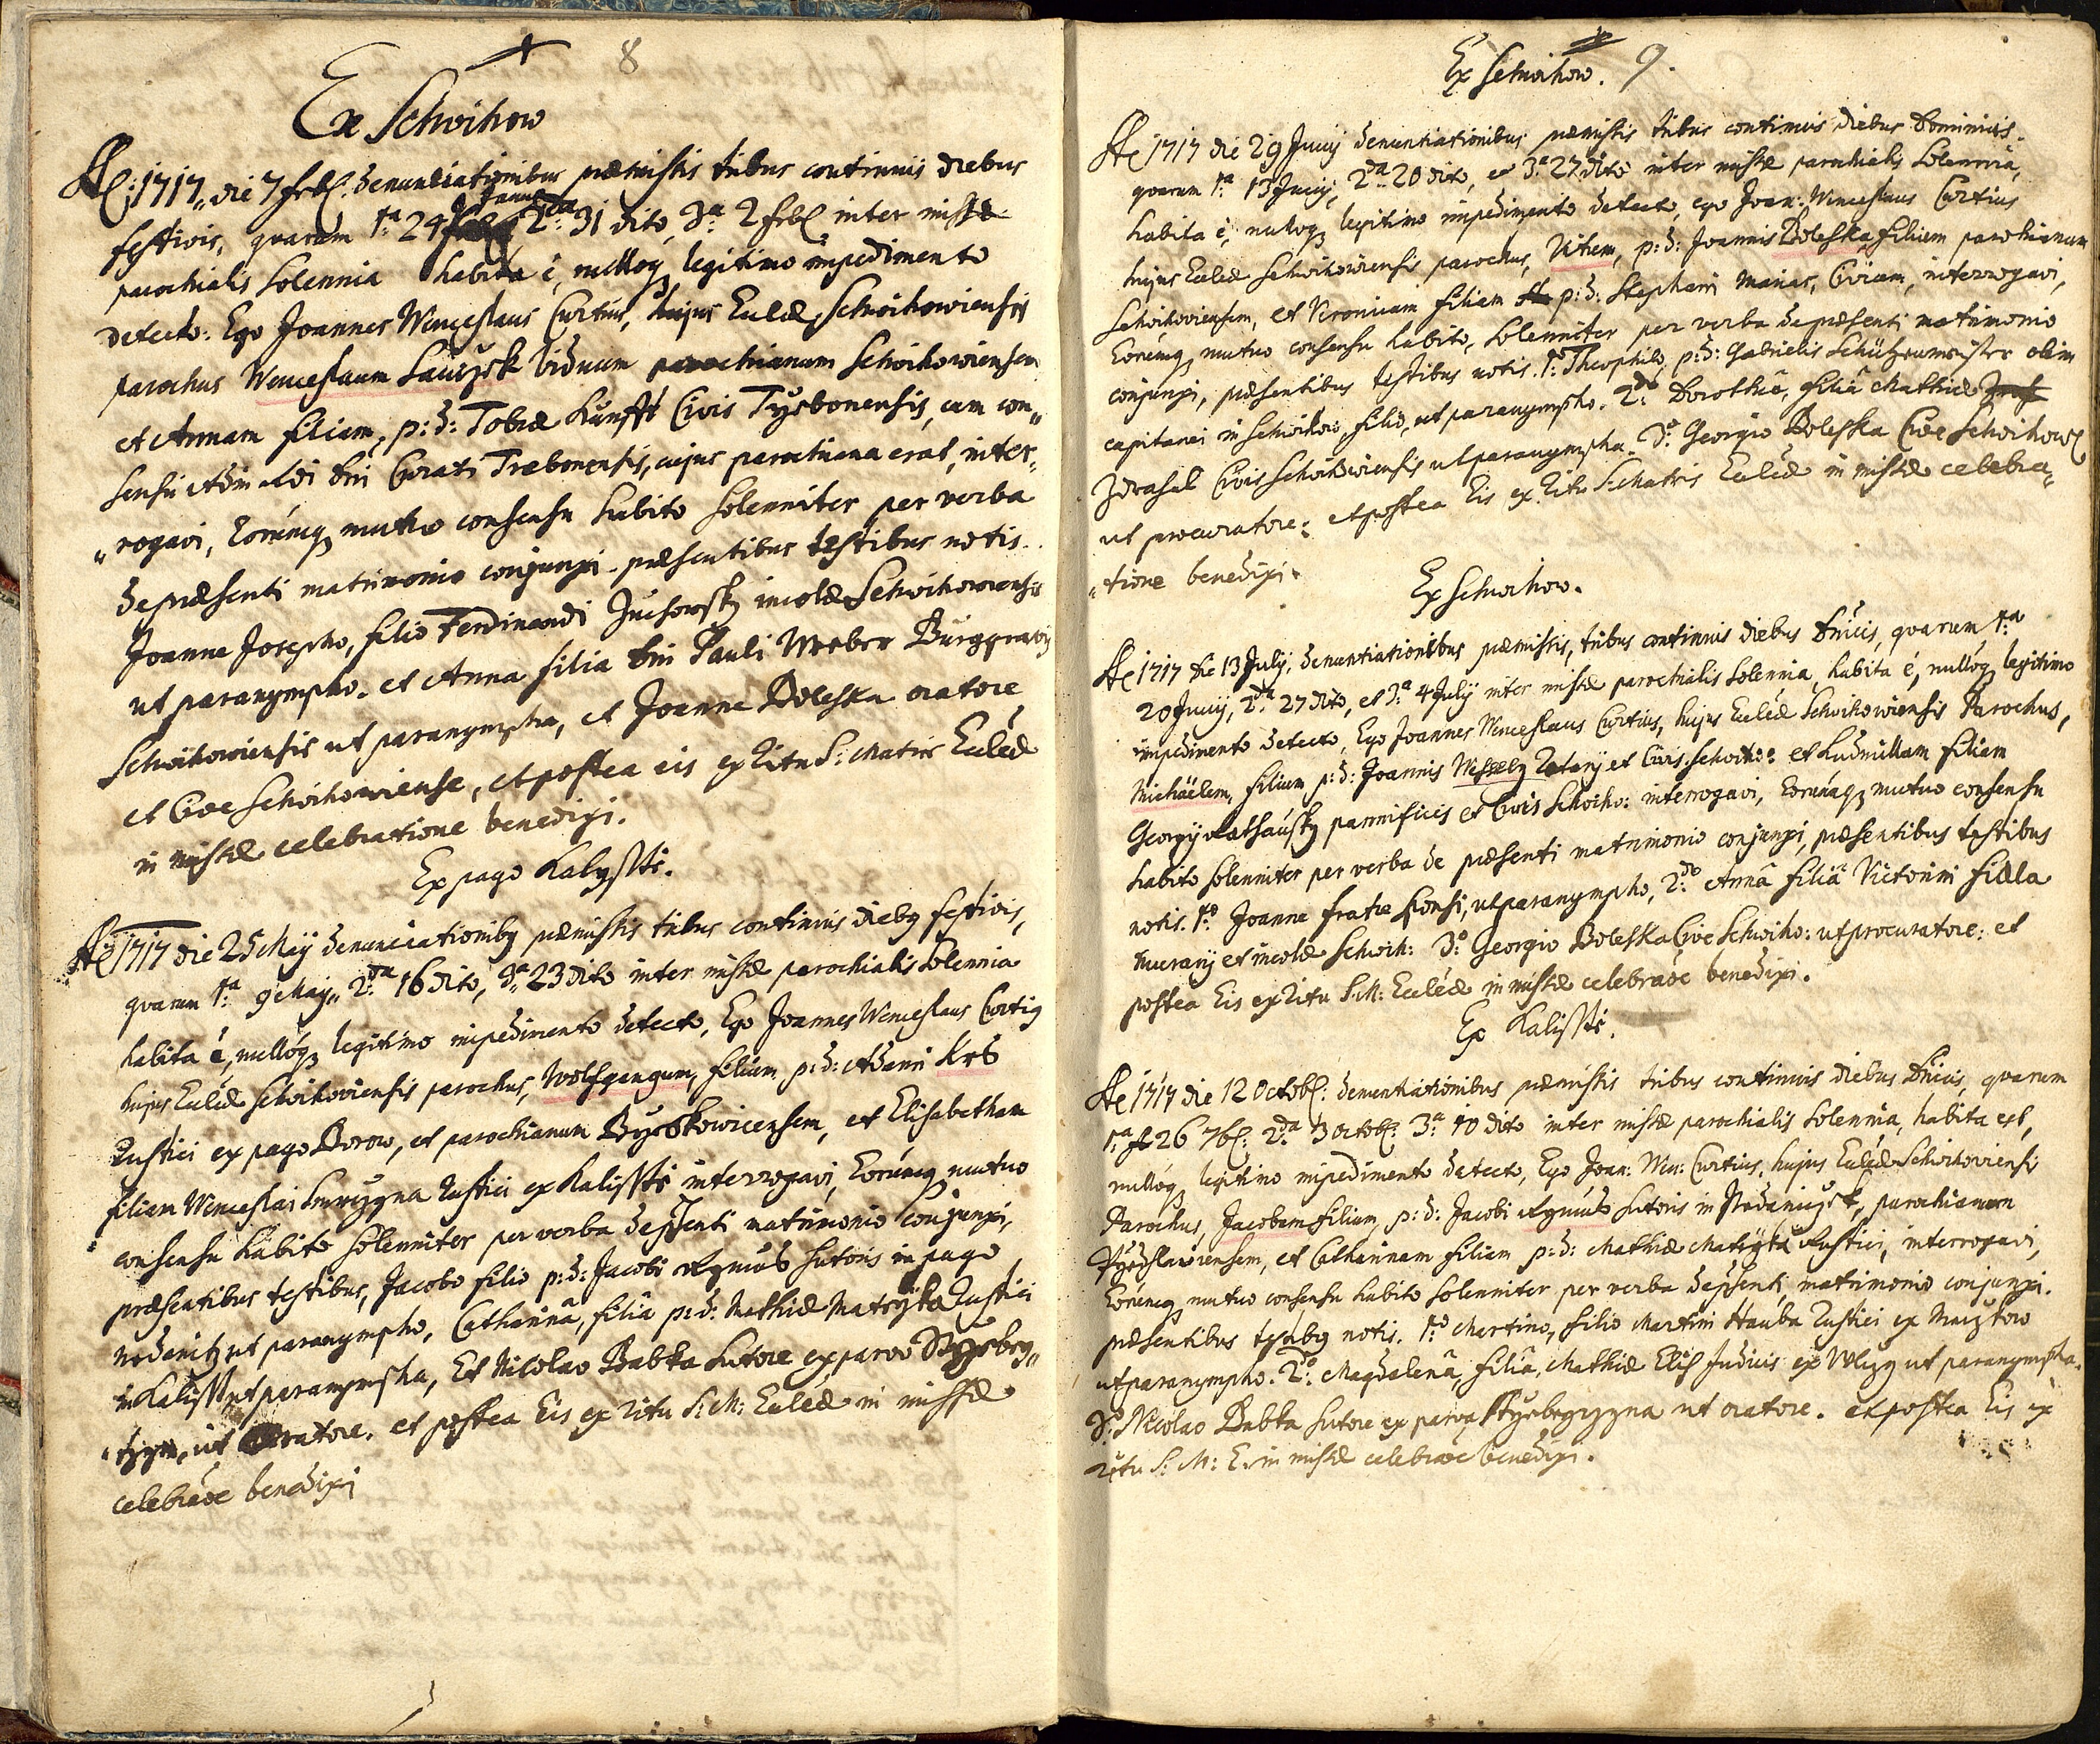 8
Ex Schwihow
Aō 1717 die 7 febr: denuntiationibus præmissis tribus continuis diebus
festivis, quarum 1ma 24 Janu: 2da 31 dito, 3a 2 febr inter missæ
parochialis Solennia habita ē, nulloq legitimo impedimento
detecto: Ego Joannes Wenceslaus Curtius, hujus Eccl̄æ Schwihowiensis
parochus Wenceslaum viduum parochianum Schwihowiensem
et Annam filiam, p: d: Tobiæ Civis con„
sensu Adm Rdi Dni Curati cujus parochiana erat, inter„
„rogavi, Eorumq mutuo consensu habito Solenniter per verba
de præsenti matrimonio conjunxi. præsentibus testibus notis.
Joanne Josepho, filio Ferdinandi incolæ Schwihowiensis
ut paranympho. et Anna filia Dni Pauli Weber Burggravij
Schwihowiensis ut paranympha, et Joanne Boleska oratore
et Cive Schwihowiense, et postea eis ex Ritu S: Matris Eccl̄æ
in missæ celebratione benedixi.
Ex pago Kalysstie.
Aō 1717 die 25 Maij denunciationibq præmissis tribus continuis diebq festivis,
quarum 1ma 9 Maij„ 2da 16 dito, 3a 23 dito inter missæ parochialis Solennia
habita ē, nulloq legitimo impedimento detecto, Ego Joannes Wenceslaus Curtiq
hujus Eccl̄æ Schwihoviensis parochus, Wolfgangum, filium p: d: Adami Krs
Rustici ex pago Borow, et parochianum et Elisabetham
filiam Wenceslai Rustici ex Kalisstie interrogavi, Eorumq mutuo
consensu habito Solenniter per verba de p̄senti matrimonio conjunxi,
præsentibus testibus, Jacobo filio p: d: Jacobi Sutoris in pago
ut paranympho, Catharinâ, filiâ p: d: Mathiæ Matrÿka Rustici
in Kalisst: ut paranympha, Et Nicolao Babka Sutore ex parvo
ut oratore. et postea Eis ex ritu S: M: Eccl̄æ in missæ
celebraōe benedixi
Ex Schwihow. 9.
Aō 1717 die 29 Junij denuntiationibus præmissis tribus continuis diebus Dominicis.
quarum 1ma 13 Junij, 2da 20 dito, et 3a 27 dito inter missæ parochialis Solennia,
habita ē, nulloq legitimo impedimento detecto, ego Joan: Wenceslaus Curtius
hujus Eccl̄æ Schwihowiensis parochus, Vitum, p: d: Joannis Boleska filium parochianum
Schwihoviensem, et Veronicam filiam p: d: Stephani Civicam, interrogavi,
Eorumq mutuo consensu habito, Solenniter per verba de præsenti matrimonio
conjunxi, præsentibus testibus notis. 1o Theophilo, p: d: Gabrielis olim
capitanei in Schwihow, filio, ut paranympho. 2do Dorotheâ, filiâ Mathiæ
Zdrahal Civis Schwihowiensis ut paranympha. 3o Georgio Boleska Cive Schwihow:
ut procuratore: et postea Eis ex Ritu S: Matris Eccl̄æ in missæ celebra„
„tione benedixi.
Ex Schwihow.
Aō 1717 die 13 Julij, denuntiationibus præmissis, tribus continuis diebus Dnicis, quarum 1ma
20 Junij, 2da 27 dito, et 3a 4 Julij inter missæ parochialis Solennia, habita ē, nulloq legitimo
impedimento detecto, Ego Joannes Wenceslaus Curtius, hujus Eccl̄æ Schwihowiensis Parochus,
Michäelem, filium p: d: Joannis Wessely et Civis Schwiho: et Ludmillam filiam
Georgij pannificis et Civis Schwiho: interrogavi, Eorumq mutuo consensu
habito Solenniter per verba de præsenti matrimonio conjunxi, præsentibus testibus
notis. 1o Joanne fratre Sponsi, ut paranympho, 2do Annâ filiâ Victorini Fidla
Murarij et incolæ Schwih: 3o Georgio Boleska Cive Schwiho: ut procuratore: et
postea Eis ex Ritu S: M: Eccl̄æ in missæ celebraōe benedixi.
Ex Kalisstie.
Aō 1717 die 12 Octobr: denuntiationibus præmissis tribus continuis diebus Dnicis, quarum
1ma 26 7br: 2da 3 octobr: 3a 10 dito inter missæ parochialis Solennia, habita est,
nulloq legitimo impedimento detecto, Ego Joan: Wen: Curtius, hujus Eccl̄æ Schwihoviensis
Parochus, Jacobum filium, p: d: Jacobi Sutoris in parochianum
et Catharinam filiam p: d: Mathiæ Matrÿka Rustici, interrogavi,
Eorumq mutuo consensu habito Solenniter per verba de p̄senti matrimonio conjunxi.
præsentibus testibq notis. 1o Martino, filio Martini Hauba Rustici ex
ut paranympho. 2do Magdalenâ, filiâ, Mathiæ Judicis ex ut paranympha.
3o Nicolao Babka Sutore ex parva ut oratore. et postea Eis ex
ritu S: M: E: in missæ celebraōe benedixi.